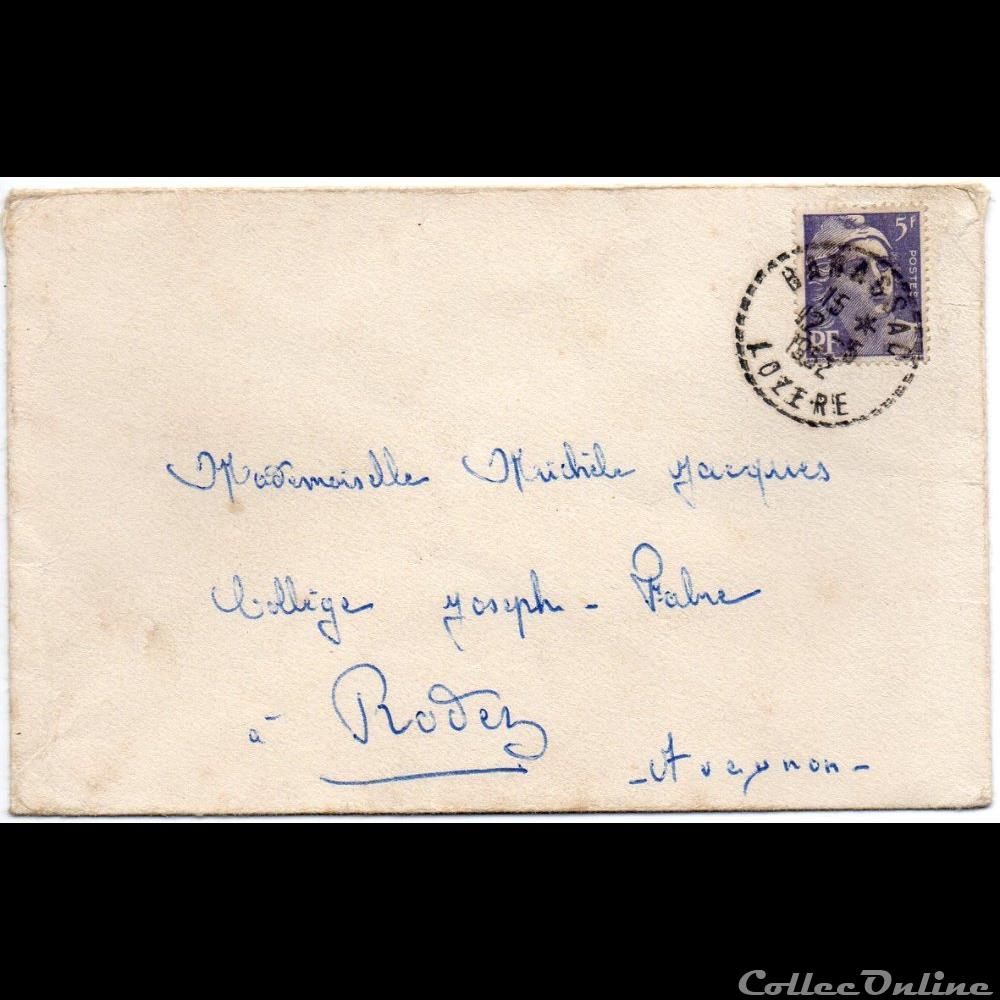 5F
POSTES
PF
BANASSAC
15
12 - 5
1952
LOZERE
Mademoiselle Michèle Jacques
Collège Joseph - Fabre
à Rodez
- Aveynon -
ColleeOnline